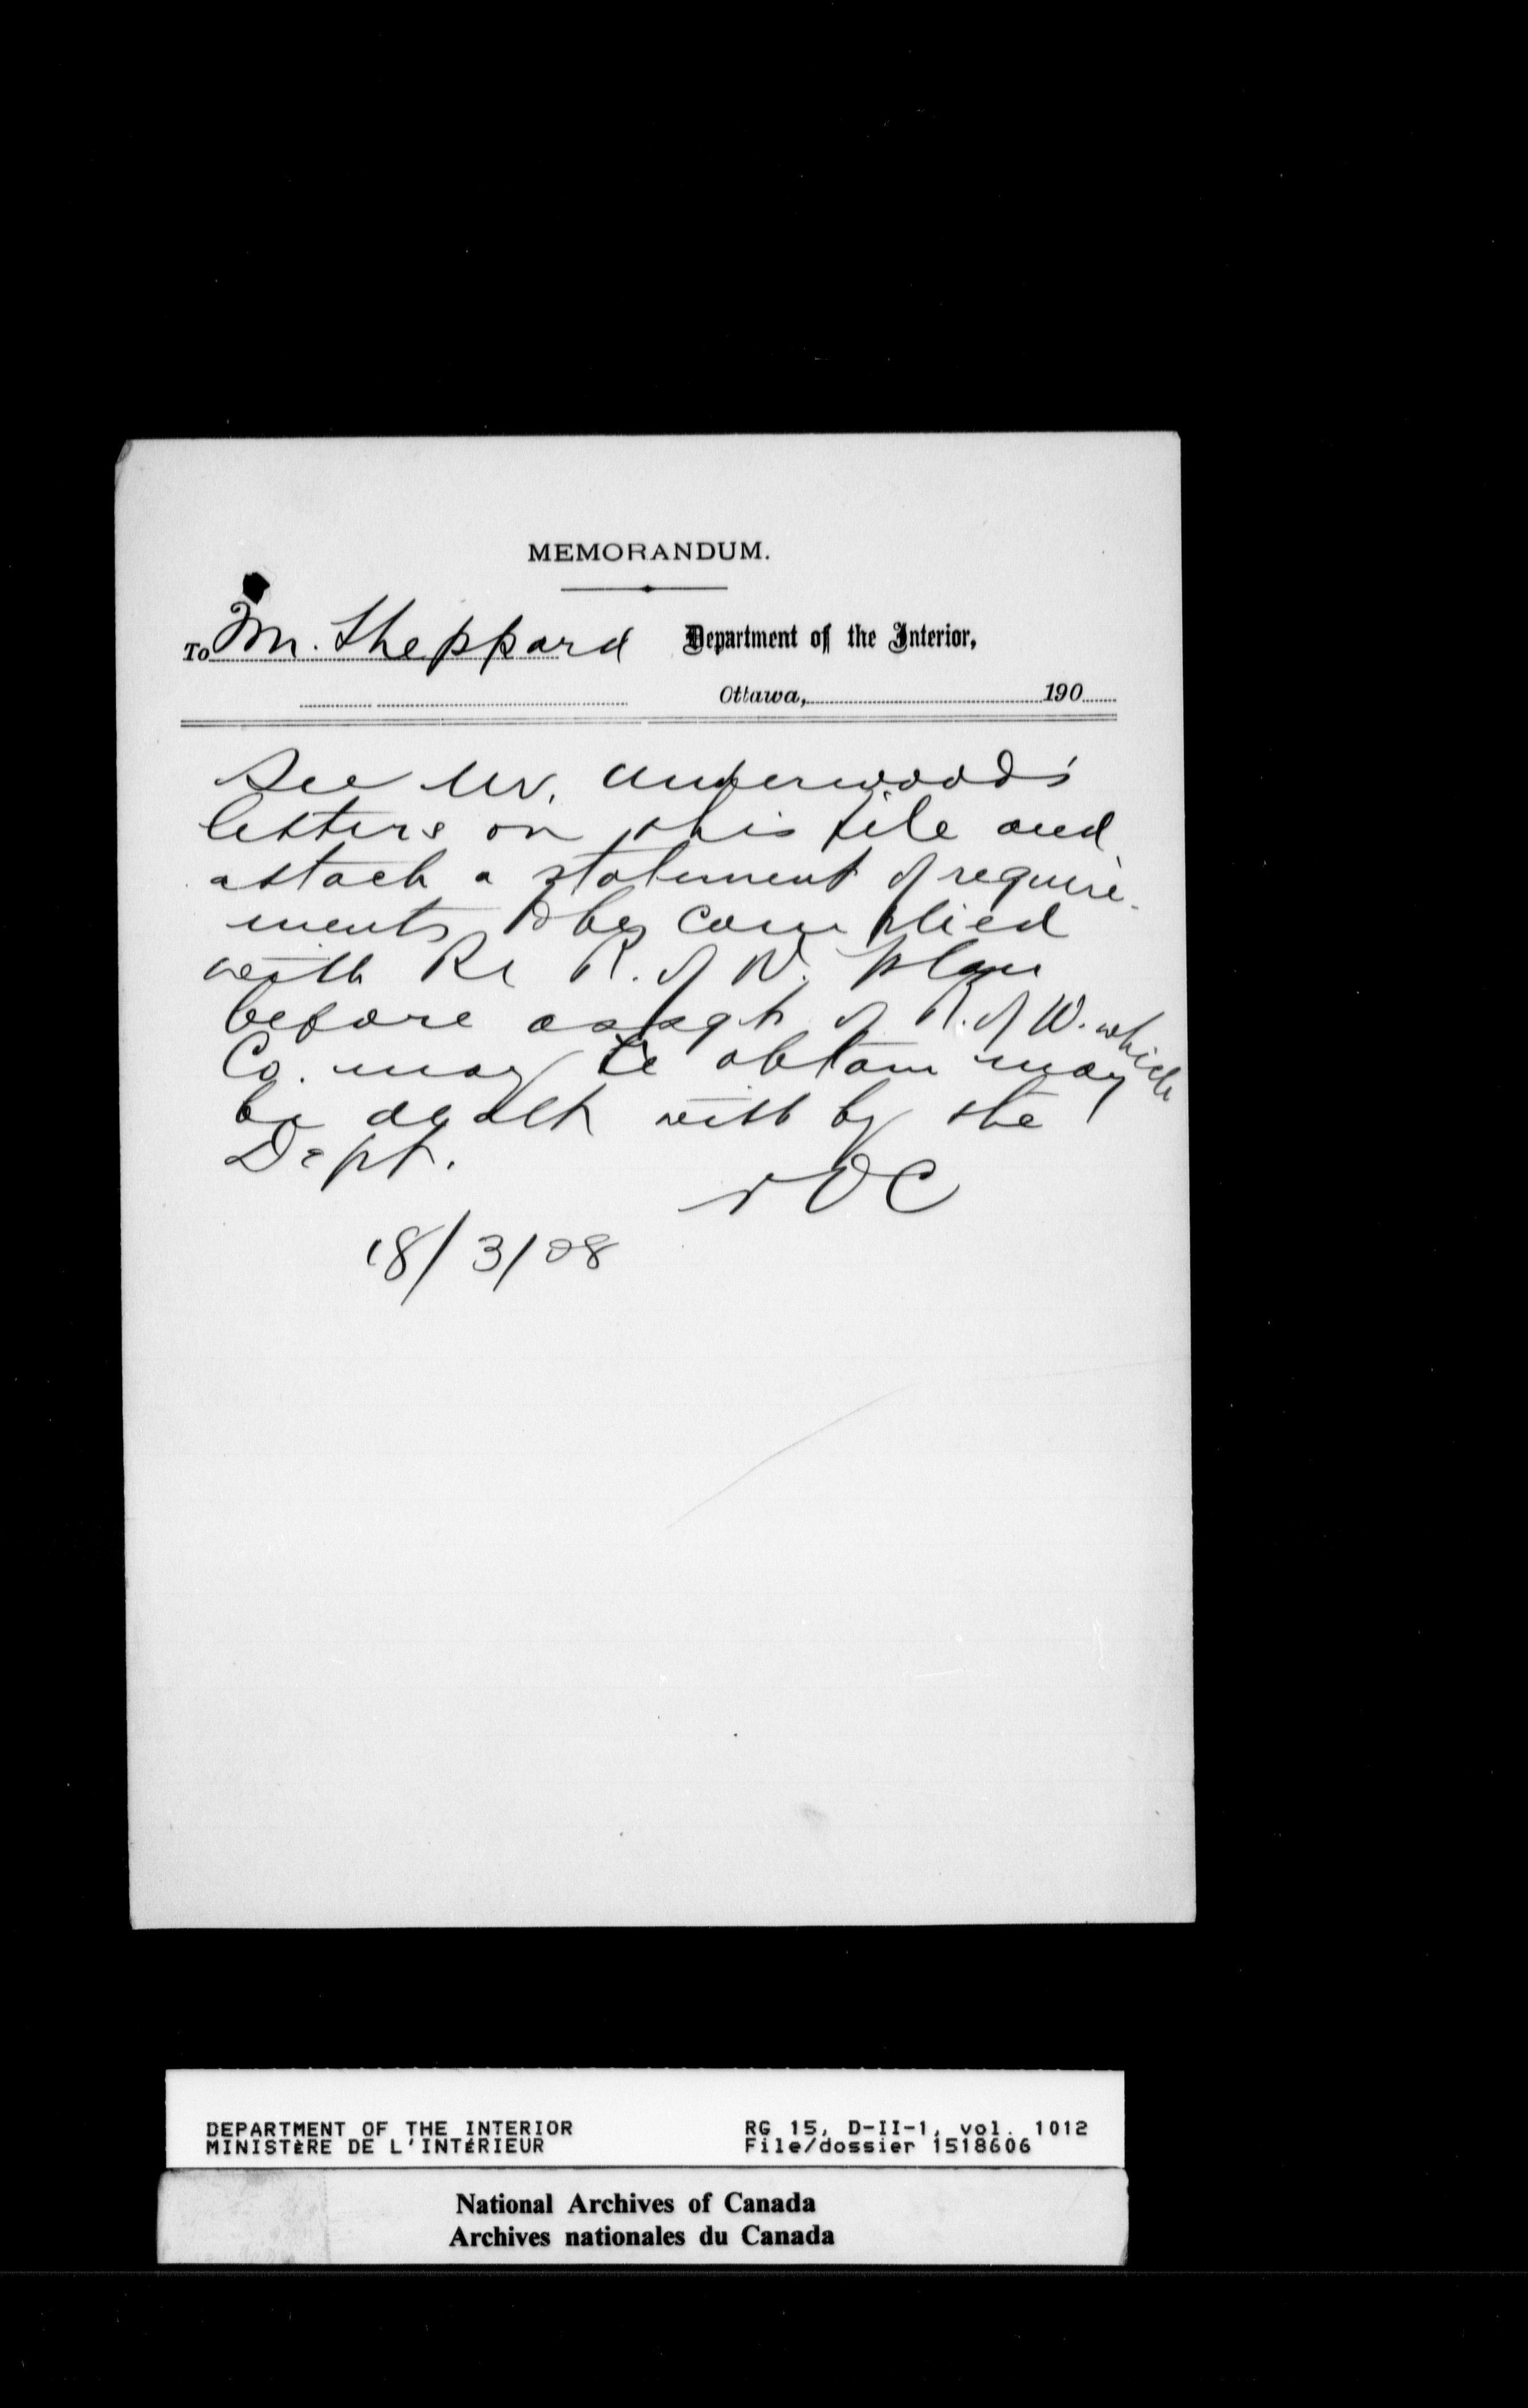 MEMORANDUM.
To Mr. Sheppard Department of the Interior,
Ottawa, 190
See Mr. Underwood's
letters on this file and
attach a statement of require-
ments to be complied
with Re R. of W. plan
before assgt of R. of W. which
Co. may obtain may
be dealt with by the
Dept.
ROC
18/3/08
DEPARTMENT OF THE INTERIOR RG 15, D-II-1, vol. 1012
MINISTÈRE DE L'INTÉRIEUR File/dossier 1518606
National Archives of Canada
Archives nationales du Canada